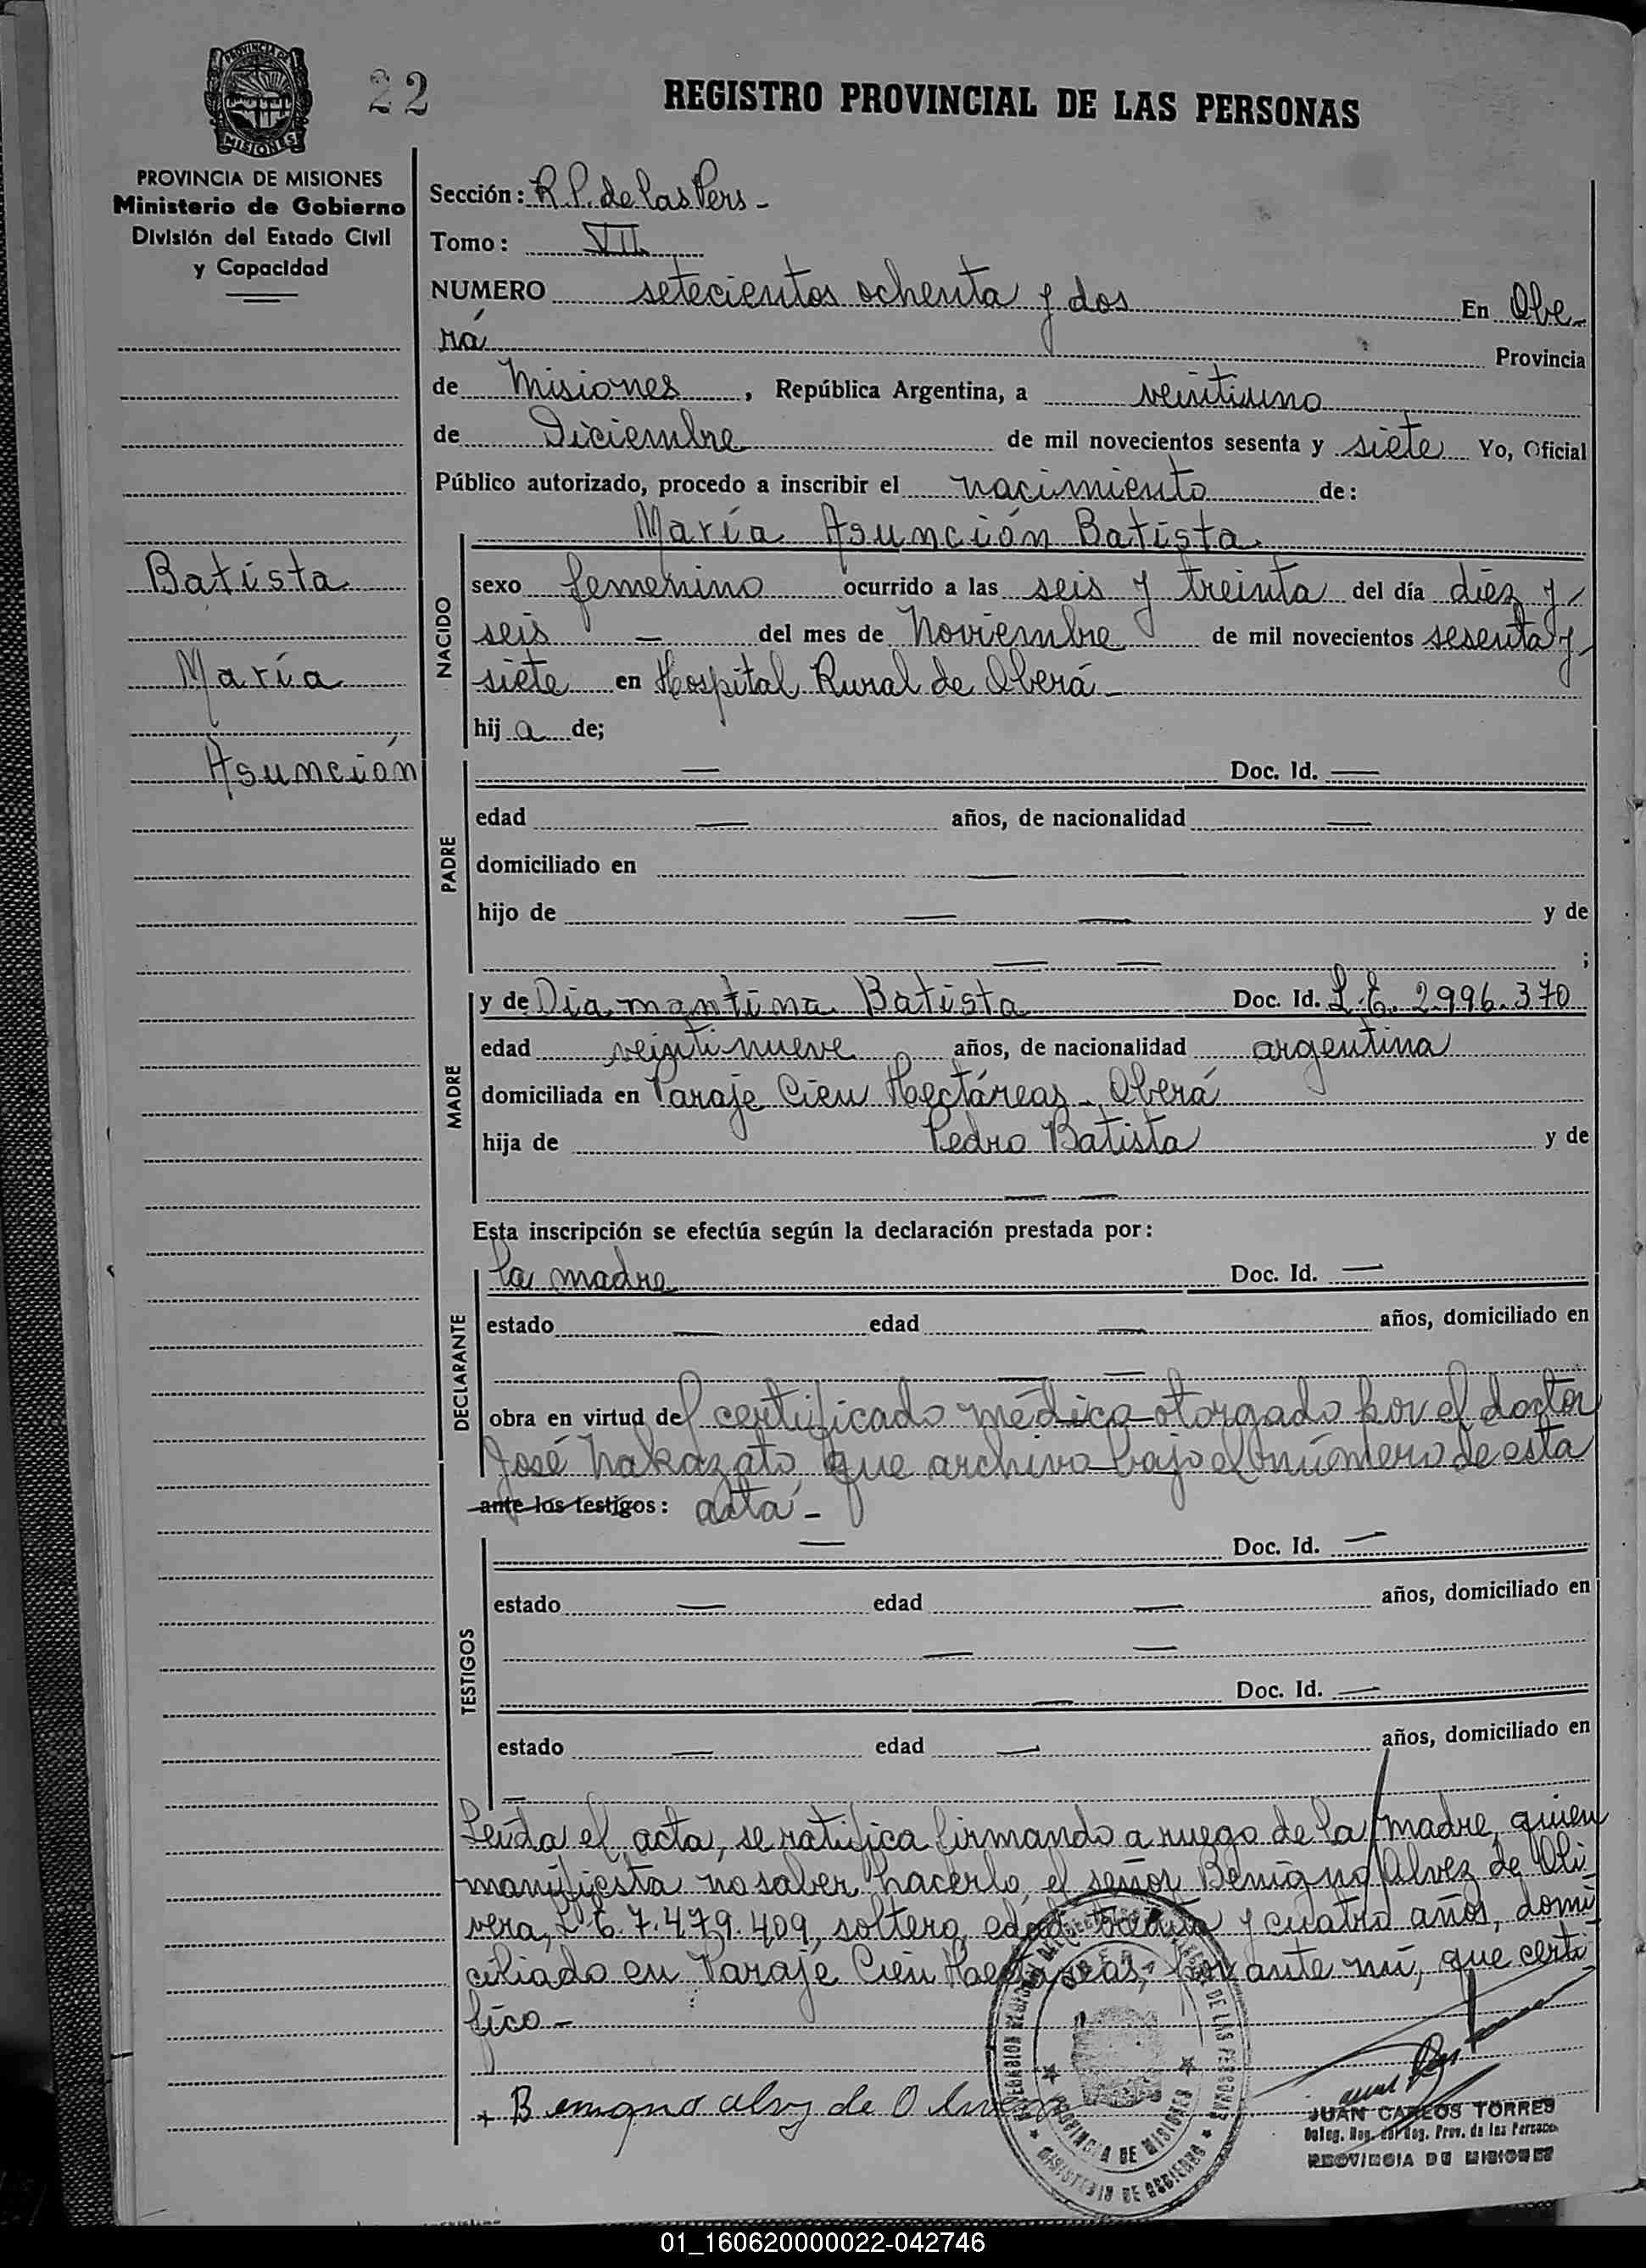 22
REGISTRO PROVINCIAL DE LAS PERSONAS
PROVINCIA DE MISIONES
PROVINCIA DE MISIONES
Ministerio de Gobierno
División del Estado Civil
y Capacidad
Sección: R.P. de las Pers -
Tomo: VII
NUMERO setecientos ochenta y dos En Obe-
rá Provincia
de Misiones, República Argentina, a veintiuno
de Diciembre de mil novecientos sesenta y siete Yo, Oficial
Público autorizado, procedo a inscribir el nacimiento de:
María Asunción Batista
Batista
María
Asunción
NACIDO
sexo femenino ocurrido a las seis y treinta del día diez y
seis — del mes de Noviembre de mil novecientos sesenta y
siete en Hospital Rural de Oberá -
hij a de;
PADRE
— Doc. Id. —
edad — años, de nacionalidad —
domiciliado en — —
hijo de — — y de
— — ;
MADRE
y de Diamantina Batista Doc. Id. L.E. 2996.370
edad veintinueve años, de nacionalidad argentina
domiciliada en Paraje Cien Hectáreas - Oberá
hija de Pedro Batista y de
— —
Esta inscripción se efectúa según la declaración prestada por:
DECLARANTE
la madre Doc. Id. —
estado — edad — años, domiciliado en
— —
obra en virtud del certificado médico otorgado por el doctor
José Nakazato, que archivo bajo el número de esta
ante los testigos: acta -
TESTIGOS
— Doc. Id. —
estado — edad — años, domiciliado en
— —
— Doc. Id. —
estado — edad — años, domiciliado en
—
Leída el acta, se ratifica firmando a ruego de la madre, quien
manifiesta no saber hacerlo, el señor Benigno Alvez de Oli
vera, L.E. 7.479.409, soltero, edad treinta y cuatro años, domi
ciliado en Paraje Cien Hectáreas, por ante mí, que certi
fico -
+ Benigno alvz de Olivera
DE LAS PERSONAS
PROVINCIA DE MISIONES
MINISTERIO DE GOBIERNO
JUAN CARLOS TORRES
Deleg. Reg. del Reg. Prov. de las Personas
PROVINCIA DE MISIONES
01_160620000022-042746